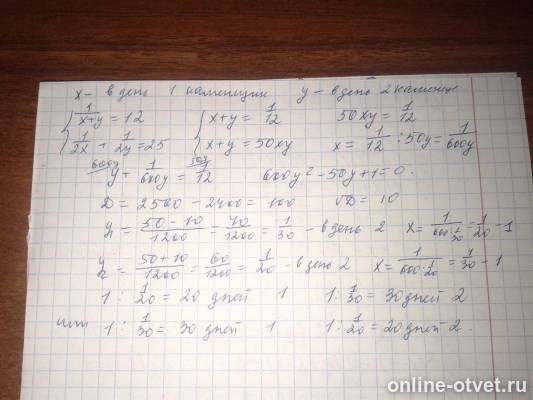 x - в день 1 каменщик y - в день 2 каменщ
{ 1/(x+y) = 12 { x+y = 1/12 50xy = 1/12
{ 1/2x + 1/2y = 25 { x+y = 50xy x = 1/12 : 50y = 1/600y
600y/ y + 1/600y = 50y/ 1/12 600y² - 50y + 1 = 0.
D = 2500 - 2400 = 100 √D = 10
y₁ = (50 - 10)/1200 = 40/1200 = 1/30 - в день 2 x = 1/(600·1/30) = 1/20 - 1
y₂ = (50 + 10)/1200 = 60/1200 = 1/20 - в день 2 x = 1/(600·1/20) = 1/30 - 1
1 : 1/20 = 20 дней 1 1 : 1/30 = 30 дней 2
или 1 : 1/30 = 30 дней 1 1 : 1/20 = 20 дней 2.
online-otvet.ru